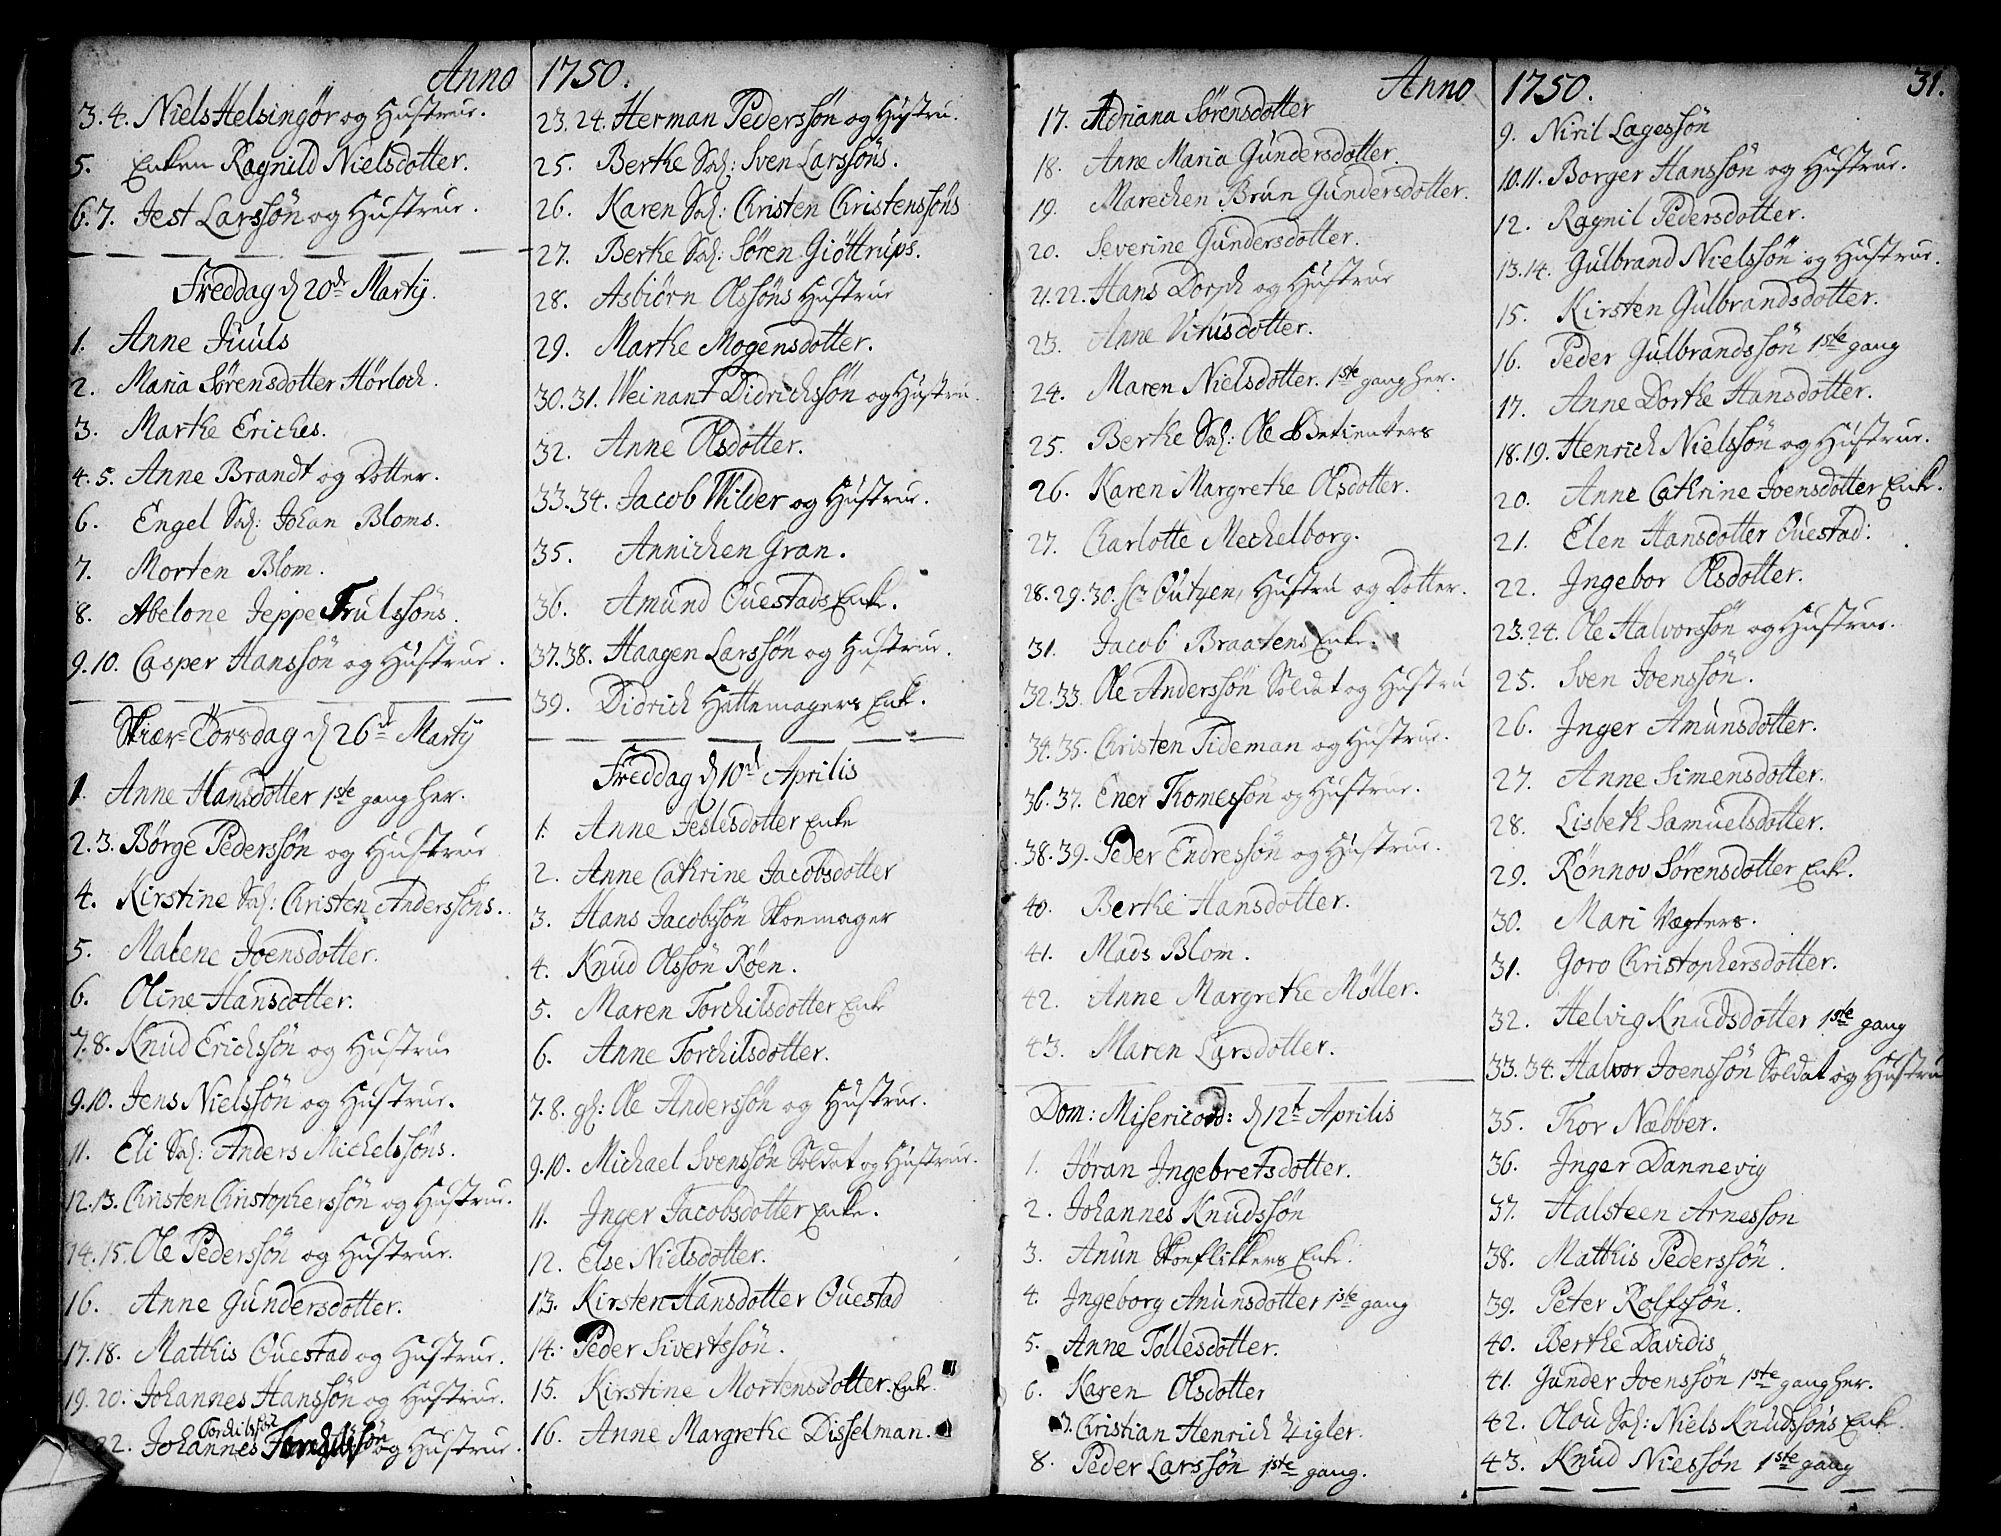 Anno 1750.
3.4. Niels Helsingør og Hustrue.
5. Enken Ragnild Nielsdotter.
6.7. Jest Larssøn og Hustrue.
Freddag d. 20de Martij.
1. Anne Juuls
2. Maria Sørensdotter Hörloch.
3. Marthe Eriches.
4.5. Anne Brandt og Dotter.
6. Engel Sal: Johan Bloms.
7. Morten Blom.
8. Abelone Jeppe Trulssøns.
9.10. Casper Hanssøn og Hustrue.
Skiær-Torsdag d. 26de Martij
1. Anne Hansdotter 1ste gang her.
2.3. Børge Pederssøn og Hustrue
4. Kirstine Sal: Christen Anderssøns.
5. Malene Joensdotter.
6. Oline Hansdotter.
7.8. Knud Erichssøn og Hustrue
9.10. Jens Nielssøn og Hustrue.
11. Eli Sal: Anders Michelssøns.
12.13. Christen Christopherssøn og Hustrue.
14.15. Ole Pederssøn og Hustrue.
16. Anne Gundersdotter.
17.18. Matthis Ouestad og Hustrue.
19.20. Johannes Hanssøn og Hustrue.
22. Johannes og Hustrue.
23.24. Herman Pederssøn og Hustru.
25. Berthe Sal: Sven Larssøns.
26. Karen Sal: Christen Christenssøns
27. Berthe Sal: Søren Giöttrups.
28. Asbiørn Olssøns Hustrue
29. Marthe Mogensdotter.
30.31. Weinant Didrichssøn og Hustru.
32. Anne Olsdotter.
33.34. Jacob Wilder og Hustrue.
35. Annichen Gran.
36. Amund Ouestads Enke.
37.38. Haagen Larssøn og Hustrue.
39. Didrich Hattemagers Enke.
Freddag d. 10de Aprilis
1. Anne Jeslesdotter Enke
2. Anne Cathrine Jacobsdotter
3. Hans Jacobssøn Skoemager
4. Knud Olssøn Røen.
5. Maren Torchilsdotter Enke
6. Anne Torchilsdotter.
7.8. gl: Ole Anderssøn og Hustrue.
9.10. Michael Svenssøn Soldat og Hustrue.
11. Inger Jacobsdotter Enke.
12. Else Nielsdotter.
13. Kirsten Hansdotter Ouestad
14. Peder Sivertssøn.
15. Kirstine Mortensdotter Enke.
16. Anne Margrethe Disselman.
Anno 1750. 31.
17. Adriana Sørensdotter
18. Anne Maria Gundersdotter.
19. Marechen Brun Gundersdotter.
20. Severine Gundersdotter.
21.22. Hans Dorph og Hustrue
23. Anne
24. Maren Nielsdotter. 1ste gang her.
25. Berthe Sal: Ole Betienters
26. Karen Margrethe Olsdotter.
27. Charlotte Mechelborg.
28.29.30. Hustru og Dotter.
31. Jacob Braatens Enke.
32.33. Ole Anderssøn Soldat og Hustru
34.35. Christen Tideman og Hustrue.
36.37. Ener Thomessøn og Hustrue.
38.39. Peder Endressøn og Hustrue.
40. Berthe Hansdotter.
41. Mads Blom.
42. Anne Margrethe Møller.
43. Maren Larsdotter.
Dom: Misericord: d. 12te Aprilis
1. Jöran Ingebretsdotter.
2. Johannes Knudssøn
3. Anun Skoeflikkers Enke.
4. Ingeborg Anunsdotter 1ste gang
5. Anne Tollesdotter.
6. Karen Olsdotter
7. Christian Henrich Zigler.
8. Peder Larssøn 1ste gang.
9. Niril Lagessøn
10.11. Borger Hanssøn og Hustrue.
12. Ragnil Pedersdotter.
13.14. Gulbrand Nielssøn og Hustrue.
15. Kirsten Gulbrandsdotter.
16. Peder Gulbrandssøn 1ste gang
17. Anne Dorthe Hansdotter.
18.19. Henrich Nielssøn og Hustrue.
20. Anne Cathrine Joensdotter Enke.
21. Elen Hansdotter Ouestad:
22. Ingebor Olsdotter.
23.24. Ole Halvorssøn og Hustrue.
25. Sven Joenssøn.
26. Inger Amunsdotter.
27. Anne Simensdotter.
28. Lisbeth Samuelsdotter.
29. Rønnov Sørensdotter Enke.
30. Mari Vægters.
31. Goro Christophersdotter.
32. Helvig Knudsdotter 1ste gang
33.34. Halvor Joenssøn Soldat og Hustru
35. Thor Næbber.
36. Inger Dannevig
37. Halsteen Arnessøn
38. Matthis Pederssøn.
39. Peter Rolfssøn.
40. Berthe Davidis
41. Gunder Joenssøn 1ste gang her.
42. Olou Sal: Niels Knudssøns Enke.
43. Knud Niessøn 1ste gang